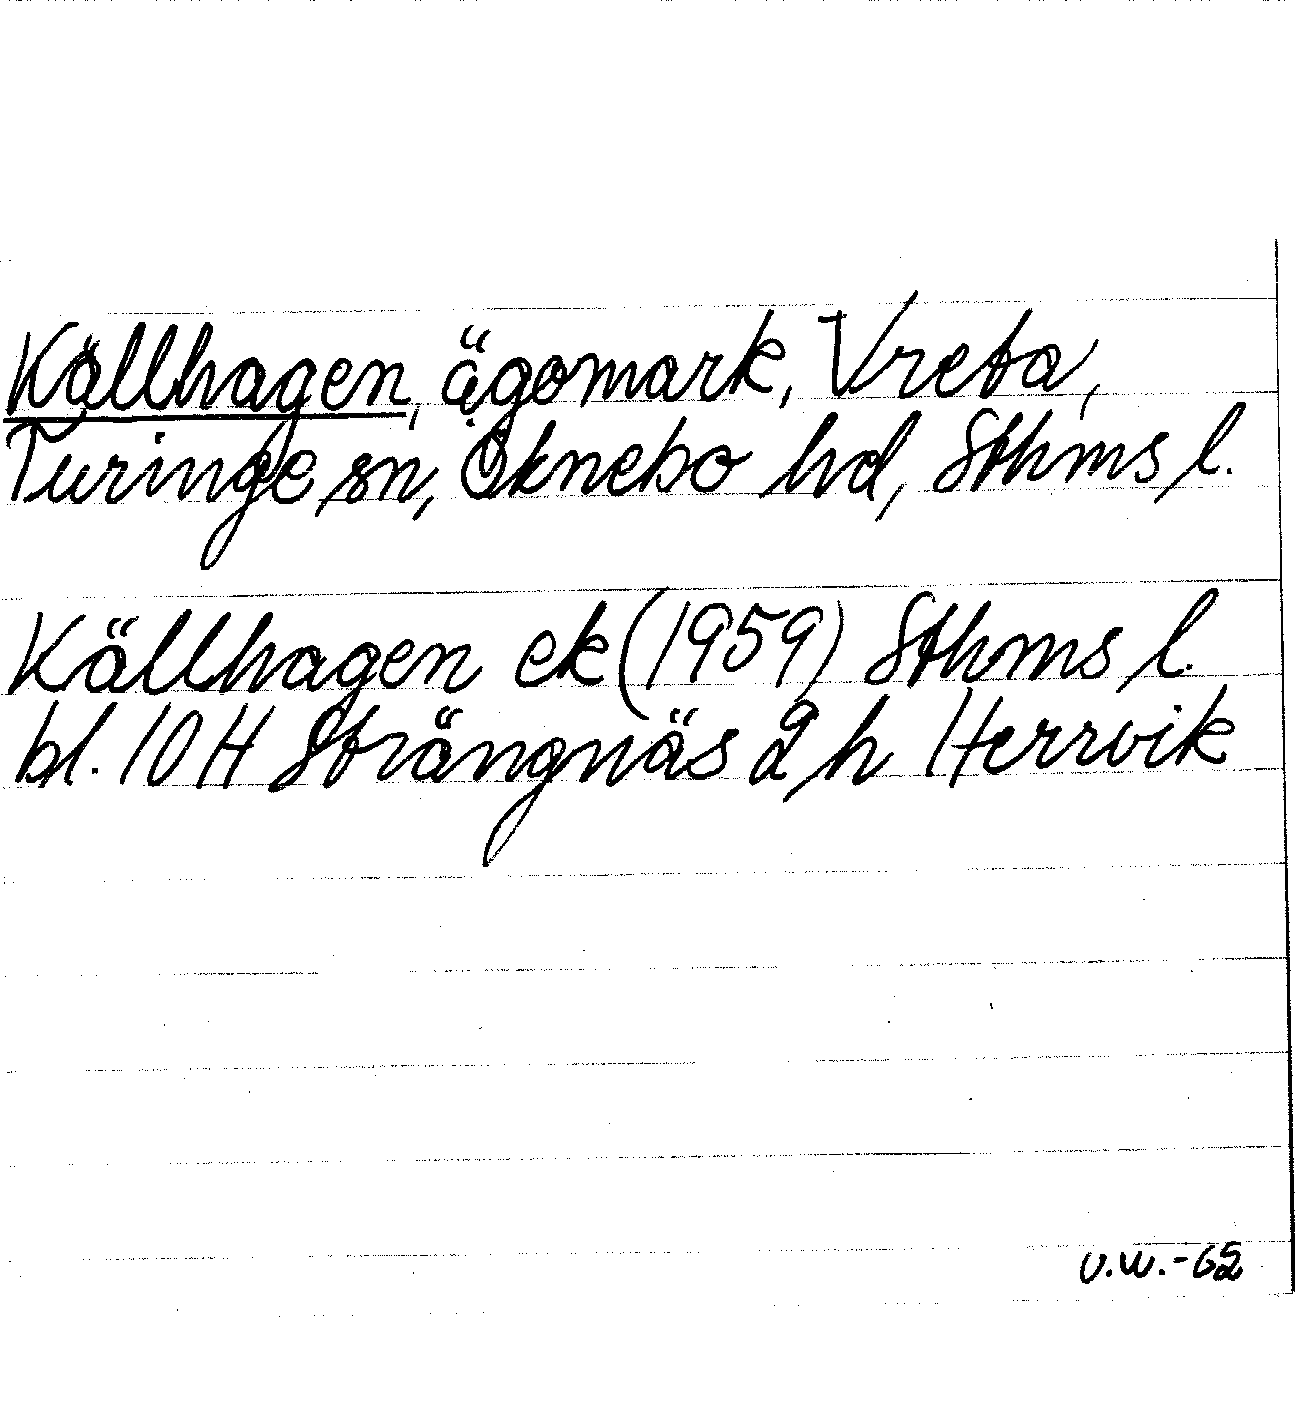 Källhagen, ägomark, Vreta,
Turinge sn, Öknebo hd, Sthms l.
Källhagen ek (1959) Sthms l.
bl. 10 H Strängnäs 2 h Herrvik
U.W.-62